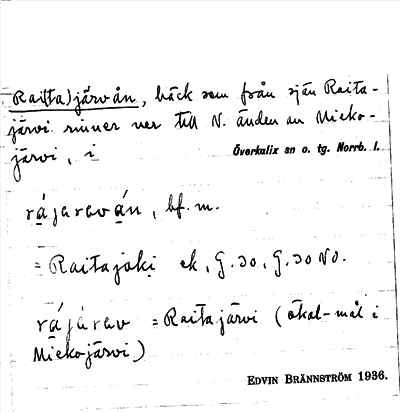 Rai(tta)järvån, bäck som från sjön Raita-
järvi rinner ner till N. änden av Mieko-
järvi, i
Överkalix sn o. tg. Norrb. l.
rájaraván, bf. m.
= Raitajoki ek, G.30, G.30 NO.
rájárav = Raitajärvi (ökal-mål i
Miekojärvi)
EDVIN BRÄNNSTRÖM 1936.